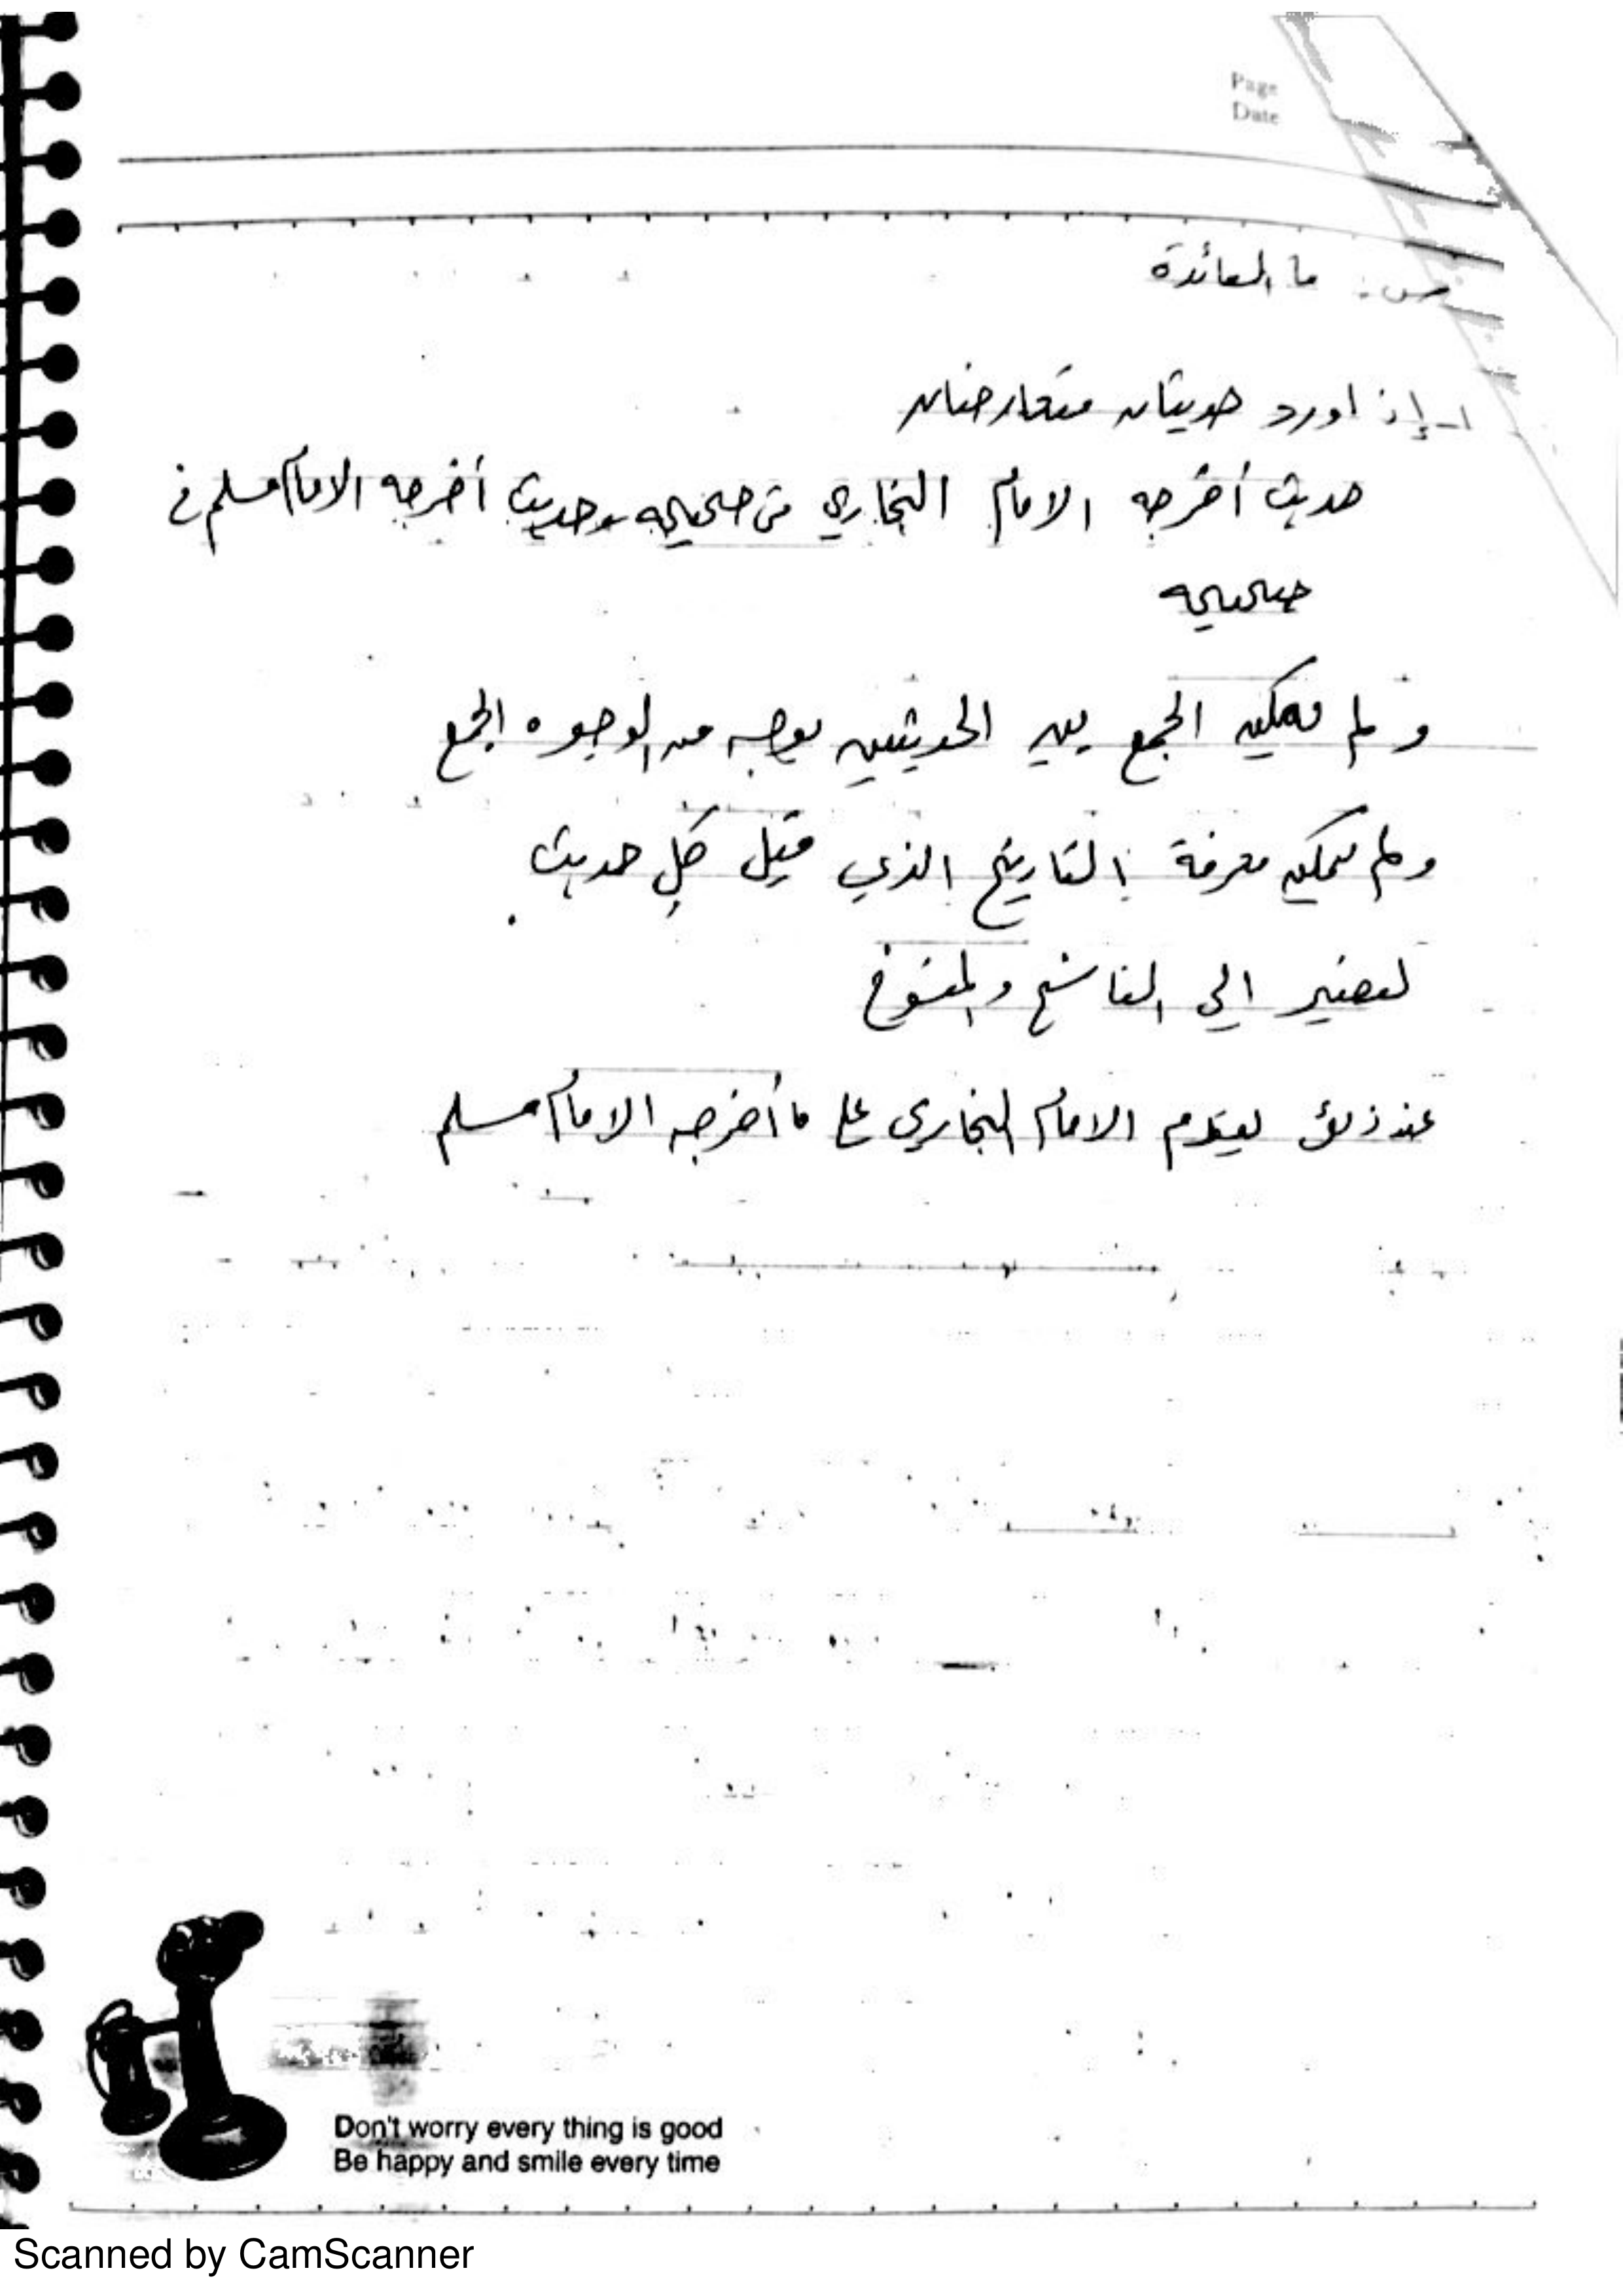 Page
Date
س: ما الفائدة
١- إذا ورد حديثان متعارضان
حديث أخرجه الامام البخاري في صحيحه وحديث أخرجه الامام مسلم في
صحيحه
و لم يمكن الجمع بين الحديثين بوجه من الوجوه الجمع
ولم يمكن معرفة التاريخ الذي قيل كل حديث
لنصير الى الناسخ والمنسوخ
عند ذلك يقدم الامام البخاري على ما أخرجه الامام مسلم
Don't worry every thing is good
Be happy and smile every time
Scanned by CamScanner